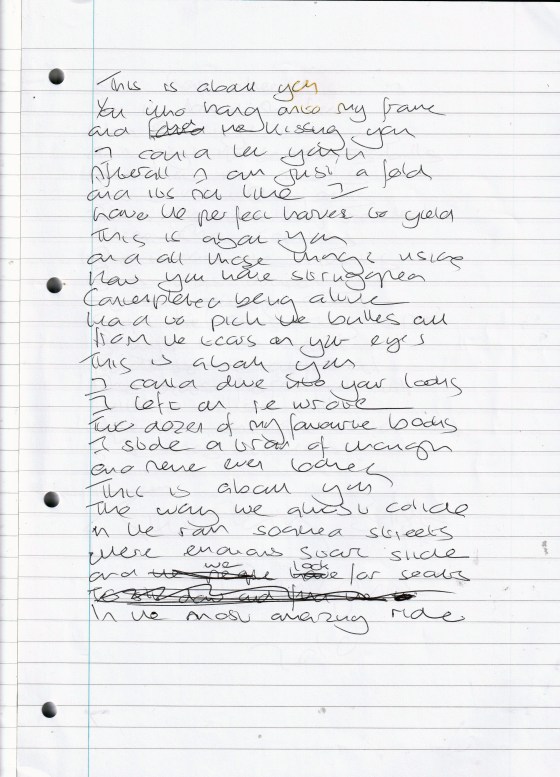 This is about you
You who hang onto my frame
and the kissing you
I could let you in
Afterall I am just a field
and its not like I
have the perfect harvest to yield
This is about you
and all those things
How you have struggled
Contemplated being alive
Had to pick the bullets out
from the tears on your eyes
This is about you
I could dive into your looks
I left on I e wrote
Two dozen of my favourite books
I stole a train of
and never even looked
This is about you
The way we almost collide
in the rain soaked streets
where emotions slide
and we look for seats
In the most amazing ride